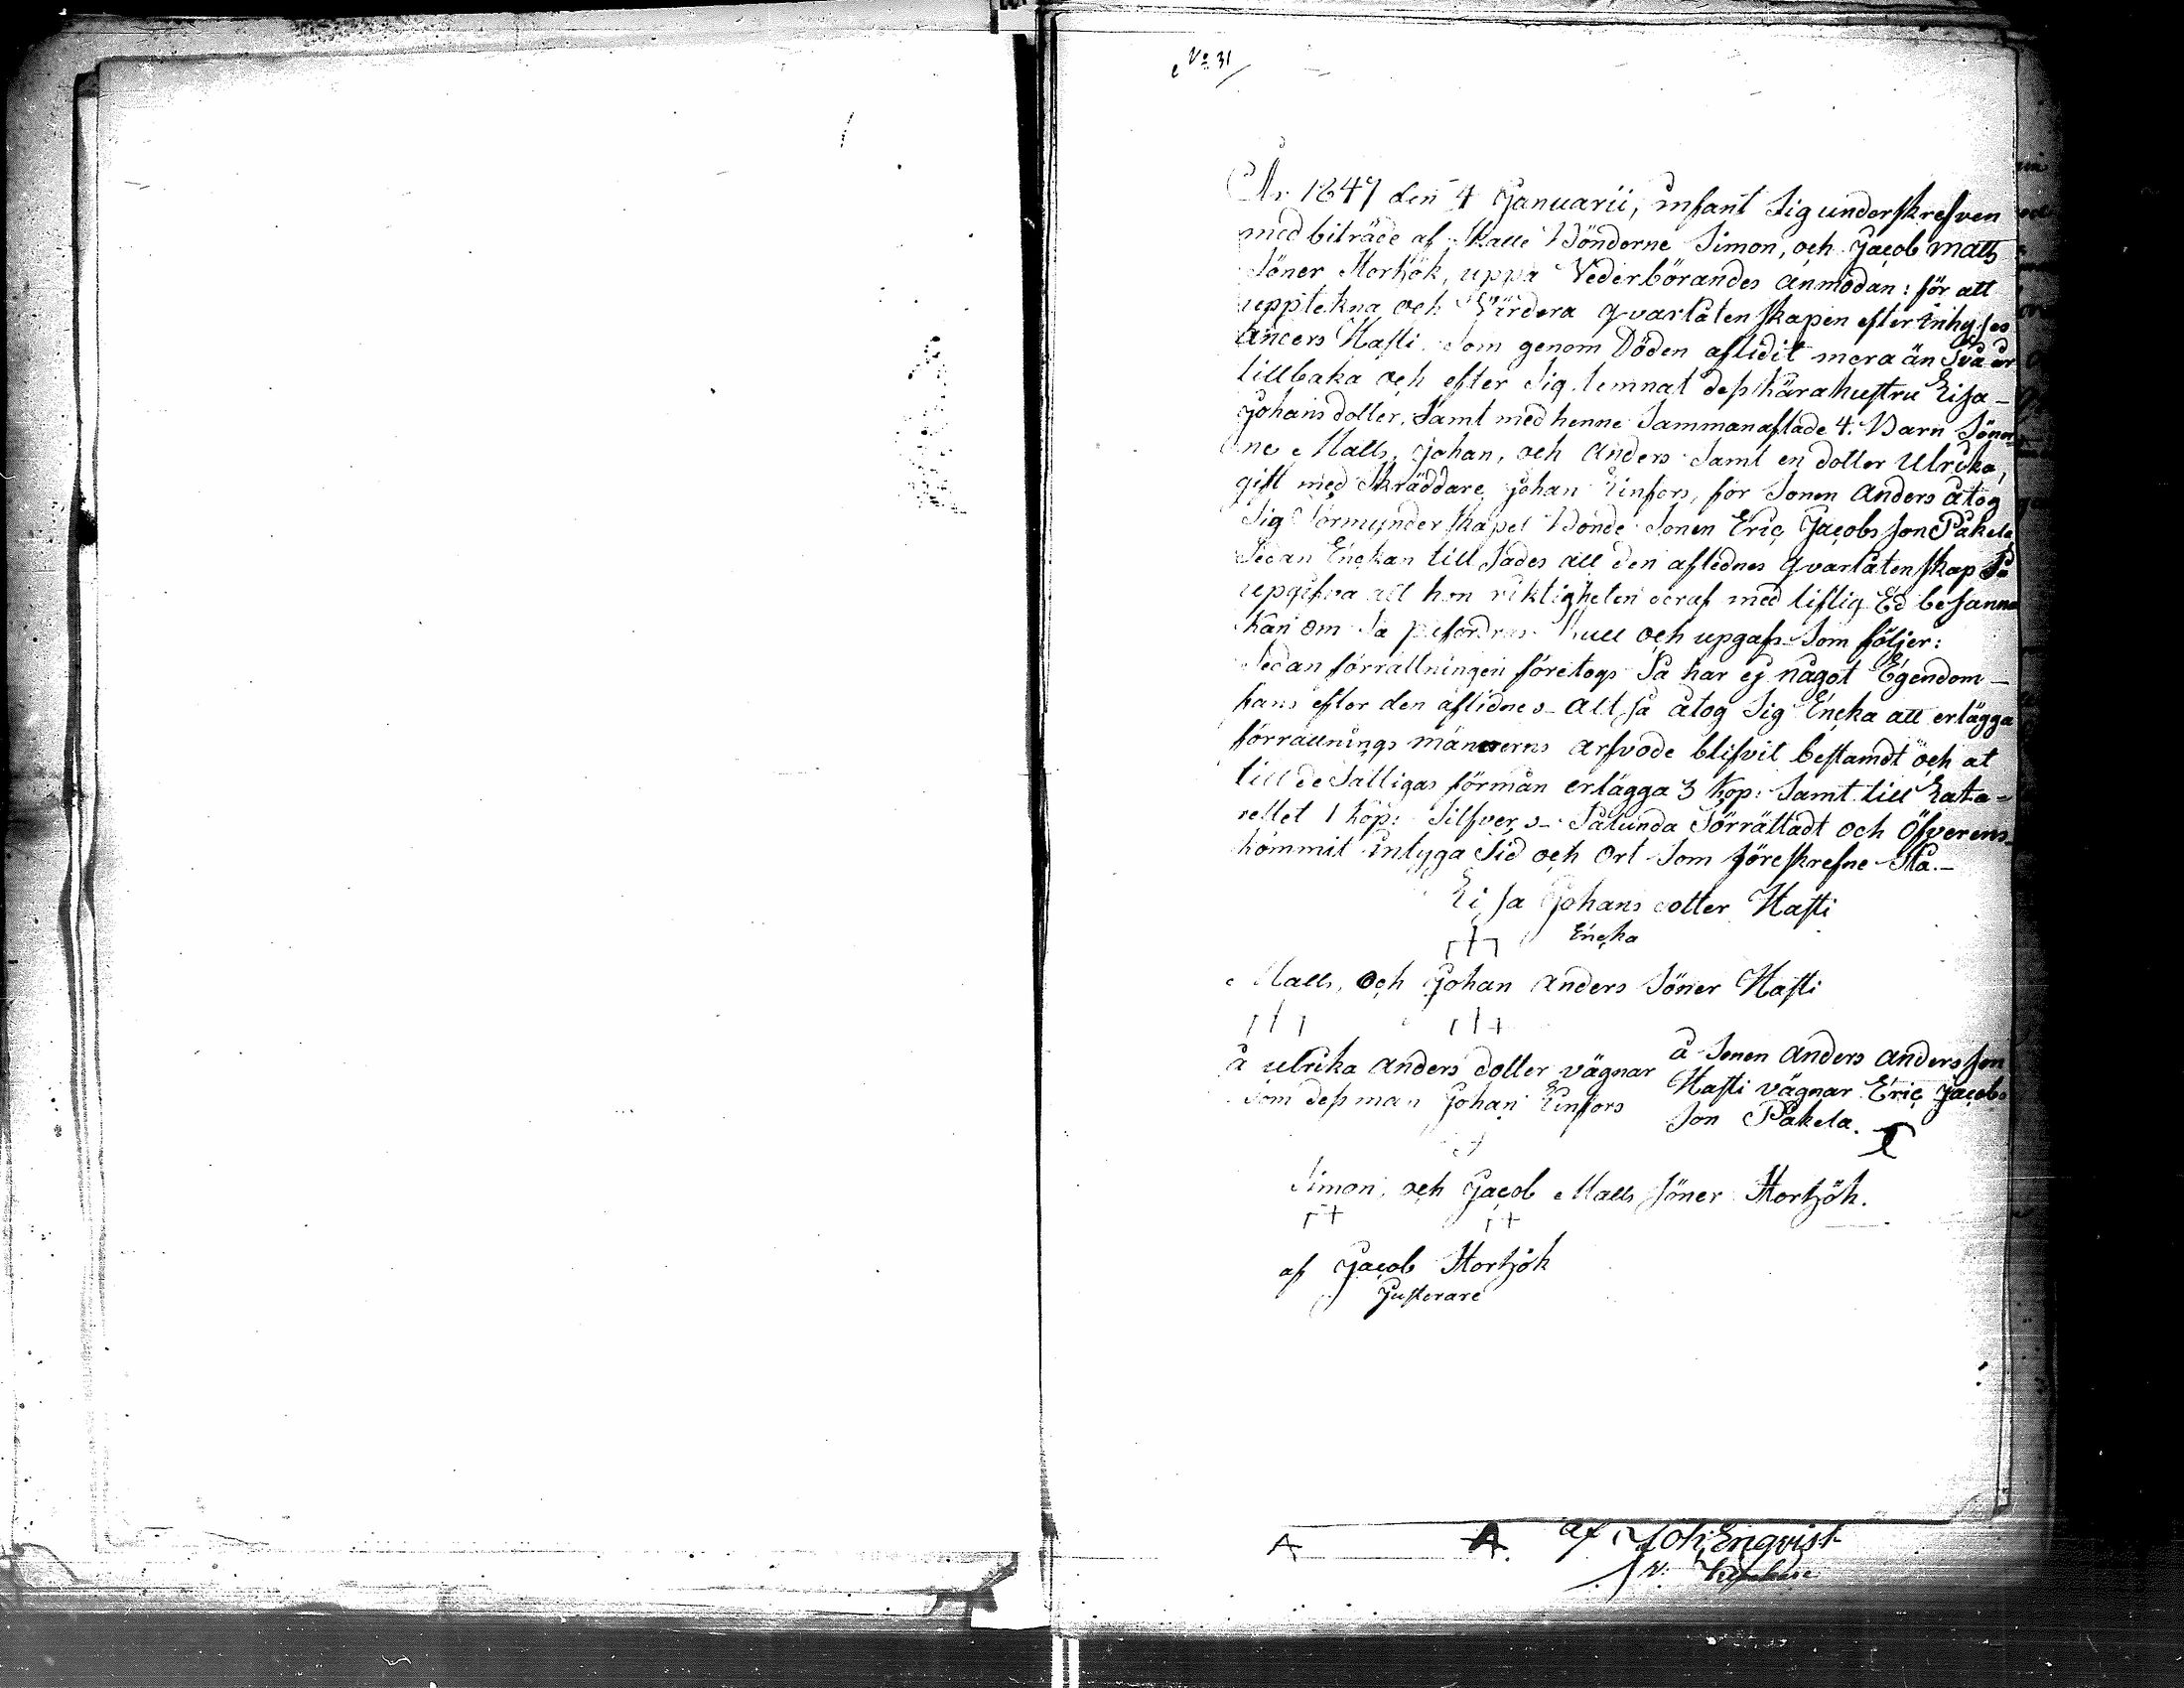 No 31
År 1847 den 4 Januarii, infant Sig underskrefven
med biträde af Skatte Bönderne Simon, och Jacob Matts
Söner Stortjök, uppå Vederbörandes anmodan: för att
upptekna och Värdera qvarlåtenskapen efter inhyses
Anders Hasti. Som genom Döden aflidit mera än två år
tillbaka och efter Sig lemnat dess kära hustru Lisa-
Johans dotter, Samt med henne Sammanaflade 4. Barn Söner-
ne Matts, Johan, och Anders Samt en dotter Ulrika,
gift med Skräddare Johan Linfors, för Sonen Anders åtog
Sig Förmynderskapet Bonde Sonen Eric Jacobsson Påkela
Sedan Enckan till Sades att den aflednes qvarlåtenskap Så
upgifva att hon riktigheten deraf med liflig Ed besanna
kan om Så påfordras Skull och upgafs Som följer:
Sedan förrattningen företogs Så har ej något Egendom-
fans efter den aflidnes- Allså åtog Sig Encka att erlägga
förrattnings männerns arfvode blifvit bestamdt och at
till de Fattigas förmån erlägga 3 Kop: Samt till Lata-
rettet 1 kop: Silfver s- Sålunda Förrättadt och Öfverens-
kommit intyga Tid och Ort Som föreskrefne Stå.-
Lisa Johans dotter Hasti
Encka
Matts, Och Johan Anders Söner Hasti
å Ulrika Anders dotter vägnar
Som dess man Johan Linfors
å Sonen Anders Andersson
Hasti vägnar Eric Jacobs
Son Påkela.
Simon, och Jacob Matts Söner Stortjök.
af Jacob Stortjök
Justerare
af Joh: Enqvist